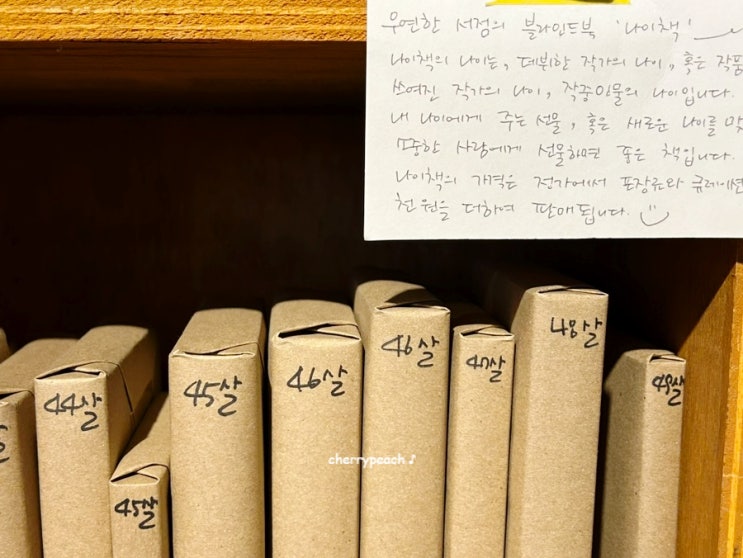 우연한 서점의 블라인드북 '나이책'
나이책의 나이는, 데뷔한 작가의 나이, 혹은 작품
쓰여진 작가의 나이, 작중인물의 나이입니다.
내 나이에게 주는 선물, 혹은 새로운 나이를 맞
소중한 사람에게 선물하면 좋은 책입니다.
나이책의 가격은 정가에서 포장료와 큐레이션
천원을 더하여 판매됩니다.
44살
45살
45살
46살
46살
47살
48살
49살
cherrypeach♪